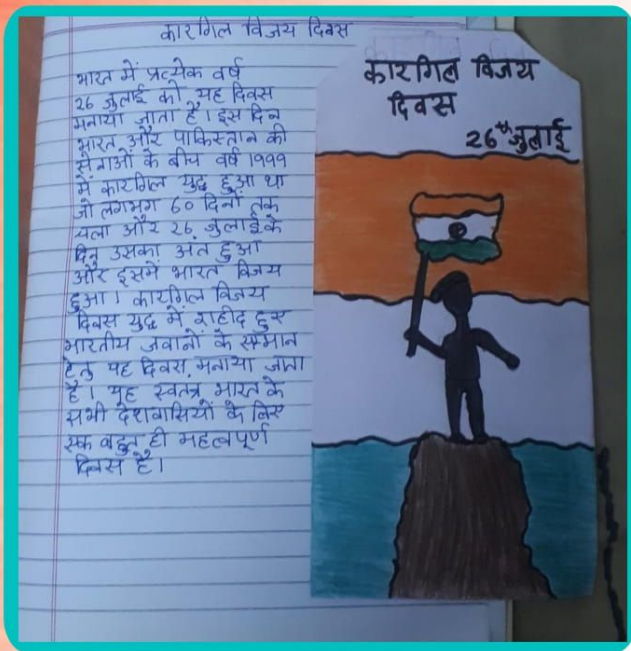 कारगिल विजय दिवस
भारत में प्रत्येक वर्ष
26 जुलाई को यह दिवस
मनाया जाता है। इस दिन
भारत और पाकिस्तान की
सेनाओं के बीच वर्ष 1999
में कारगिल युद्ध हुआ था
जो लगभग 60 दिनों तक
चला और 26 जुलाई के
दिन उसका अंत हुआ
और इसमें भारत विजय
हुआ। कारगिल विजय
दिवस युद्ध में शहीद हुए
भारतीय जवानों के सम्मान
हेतु यह दिवस मनाया जाता
है। यह स्वतंत्र भारत के
सभी देशवासियों के लिए
एक बहुत ही महत्वपूर्ण
दिवस है।
कारगिल विजय
दिवस
26th जुलाई